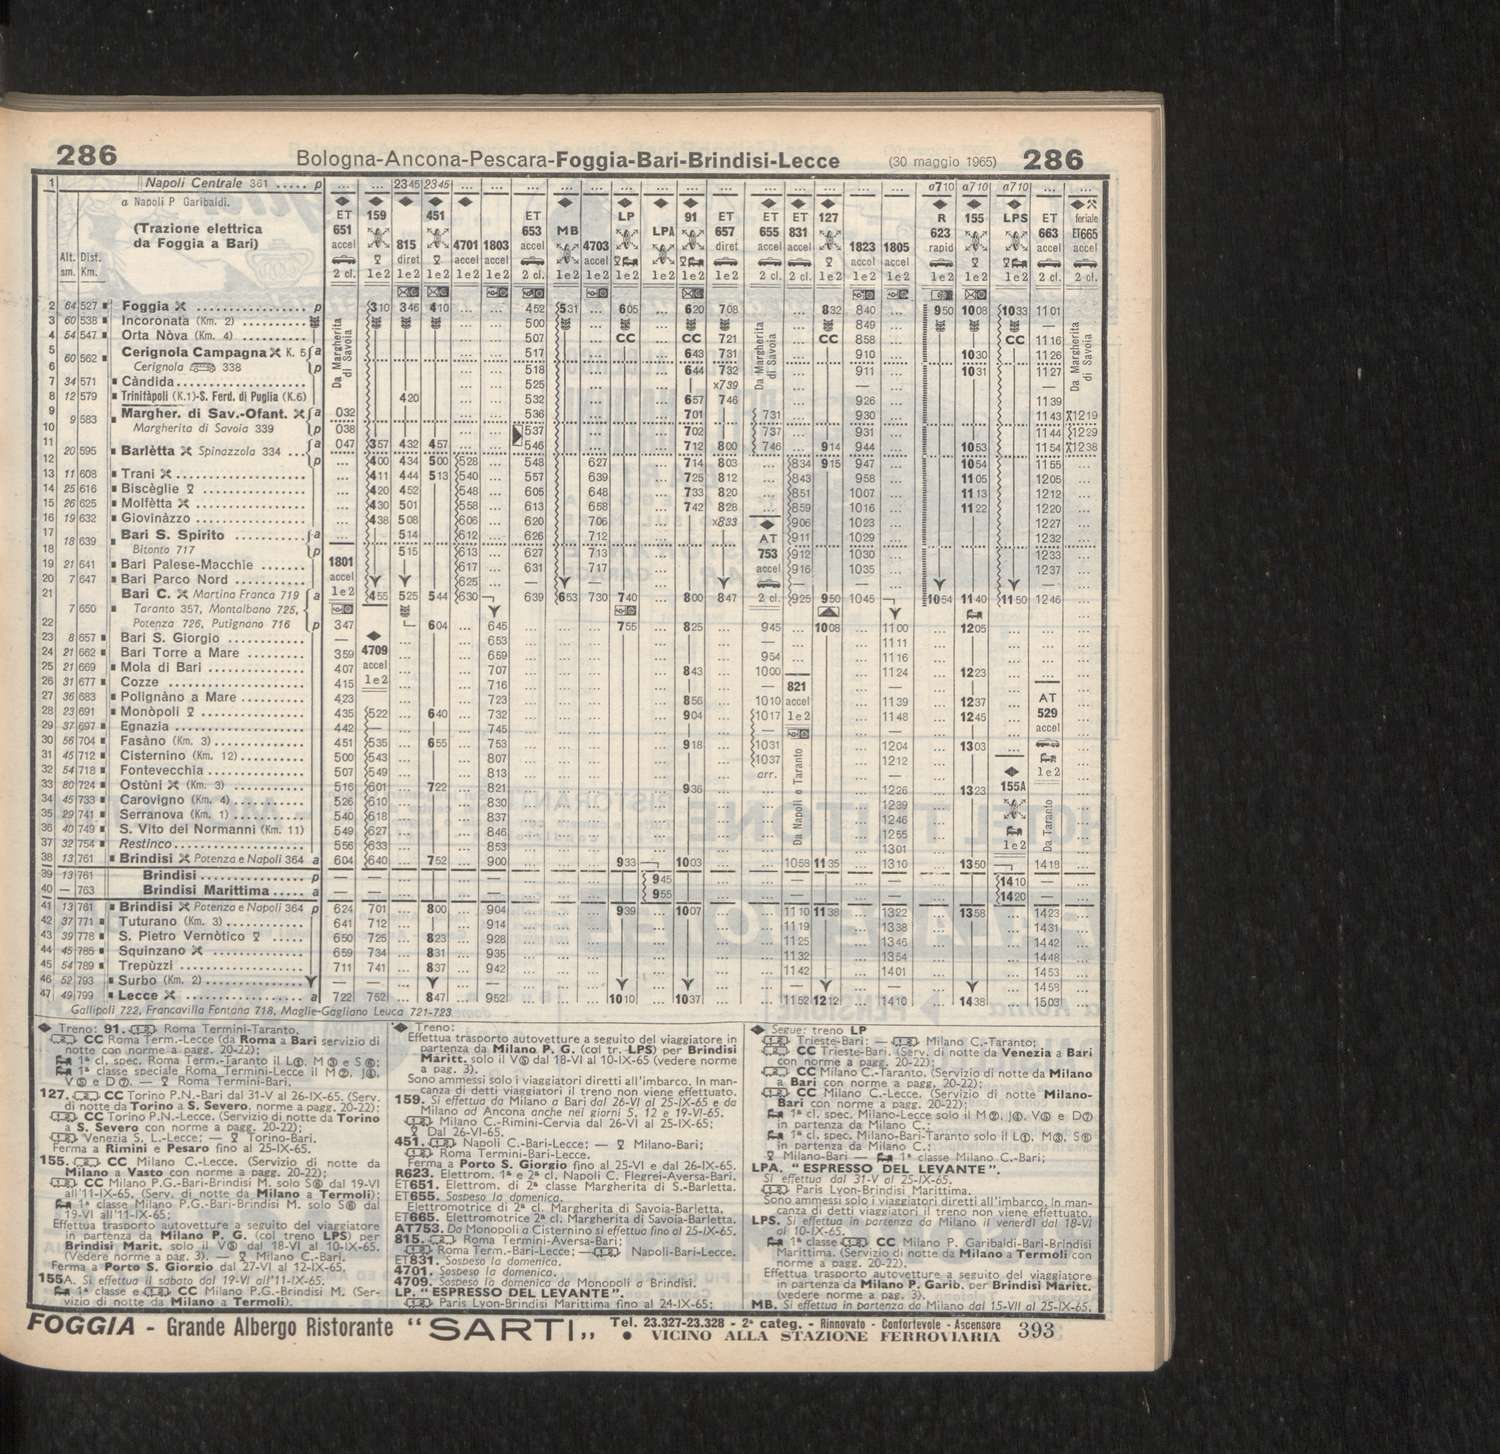 286 Bologna-Ancona-Pescara-Foggia-Bari-Brindisi-Lecce (30 maggio 1965) 286
1 Napoli Centrale 361 ..... p ... ... 2345 2345 ... ... ... ... ... ... ... ... ... ... ... ... ... ... a710 a710 a710 ... ...
a Napoli P Garibaldi.
(Trazione elettrica
da Foggia a Bari)
Alt. Dist.
sm. Km.
ET 159 451 ET LP 91 ET ET ET 127 R 155 LPS ET feriale
651 815 4701 1803 653 MB 4703 LPA 657 655 831 1823 1805 623 663 ET665
accel diret accel accel accel accel diret accel accel accel accel rapid accel accel
2 cl. 1e2 1e2 1e2 1e2 1e2 2 cl. 1e2 1e2 1e2 1e2 1e2 1e2 2 cl. 2 cl. 1e2 1e2 1e2 1e2 1e2 1e2 2 cl. 2 cl.
2 64 527 Foggia ................ p 310 346 410 ... ... 452 531 ... 605 ... 620 708 832 840 ... 950 1008 1033 1101
3 60 538 Incoronata (Km. 2) .......... 500 849
4 54 547 Orta Nòva (Km. 4) .......... 507 CC CC 721 CC 858 CC 1116
5 60 562 Cerignola Campagna K. 5 a 517 643 731 910 1030 1126
6 Cerignola 338 p 518 644 732 911 1031 1127
7 34 571 Càndida .................. 525 x739 —
8 12 579 Trinitàpoli (K.1)-S. Ferd. di Puglia (K.6) 420 532 657 746 926 1139
9 9 583 Margher. di Sav.-Ofant. a 032 536 701 731 930 1143 1219
10 Margherita di Savoia 339 p 038 537 702 737 931 1144 1229
11 20 595 Barlètta Spinazzola 334 ... a 047 357 432 457 546 712 800 746 914 944 1053 1154 1238
12 p ... 400 434 500 528 548 627 714 803 834 915 947 1054 1155
13 11 608 Trani .................. 411 444 513 540 557 639 725 812 843 958 1105 1205
14 25 616 Biscèglie ................ 420 452 548 605 648 733 820 851 1007 1113 1212
15 26 625 Molfètta ................ 430 501 558 613 658 742 828 859 1016 1122 1220
16 19 632 Giovinàzzo ............... 438 508 606 620 706 x833 906 1023 1227
17 18 639 Bari S. Spirito .......... a 514 612 626 712 911 1029 1232
18 Bitonto 717 p 515 613 627 713 912 1030 1233
19 21 641 Bari Palese-Macchie ....... 617 631 717 916 1035 1237
20 7 647 Bari Parco Nord .......... 625 — —
21 7 650 Bari C. Martina Franca 719 a 455 525 544 630 639 653 730 740 800 847 925 950 1045 1054 1140 1150 1246
Taranto 357, Montalbano 725,
22 Potenza 726, Putignano 716 p 347 604 645 755 825 945 1008 1100 1205
1801
accel
1e2
AT
753
accel
2 cl.
23 8 657 Bari S. Giorgio ........... — 653 — 1111
24 21 662 Bari Torre a Mare ......... 359 659 954 1116
25 21 669 Mola di Bari ............. 407 707 843 1000 1124 1223
26 31 677 Cozze ................... 415 716 — —
27 36 683 Polignàno a Mare ......... 423 723 856 1010 1139 1237
28 23 691 Monòpoli ................ 435 522 640 732 904 1017 1148 1245
29 37 697 Egnazia ................. 442 — 745 —
30 56 704 Fasàno (Km. 3) ........... 451 535 655 753 918 1031 1204 1303
31 45 712 Cisternino (Km. 12) ........ 500 543 807 1037 1212
32 54 718 Fontevecchia ............. 507 549 813 arr. —
33 80 724 Ostùni (Km. 3) .......... 516 601 722 821 936 1226 1323
34 45 733 Carovigno (Km. 4) ......... 526 610 830 1239
35 29 741 Serranova (Km. 1) ......... 540 618 837 1246
36 40 749 S. Vito dei Normanni (Km. 11) 549 627 846 1255
37 32 754 Restinco ................. 556 633 853 1301
38 13 761 Brindisi Potenza e Napoli 364 a 604 640 752 900 933 1003 1053 1135 1310 1350 1418
39 13 761 Brindisi ............... p — — — 945 — 1410 —
40 — 763 Brindisi Marittima ..... a — — — 955 — 1420 —
41 13 761 Brindisi Potenza e Napoli 364 p 624 701 800 904 939 1007 1110 1138 1322 1358 1423
42 37 771 Tuturano (Km. 3) .......... 641 712 914 1119 1338 1431
43 39 778 S. Pietro Vernòtico ..... 650 725 823 928 1125 1346 1442
44 45 785 Squinzano ............... 659 734 831 935 1132 1354 1448
45 54 789 Trepùzzi ................. 711 741 837 942 1142 1401 1453
46 52 793 Surbo (Km. 2) ............ — — — 1458
47 49 799 Lecce ................ a 722 752 847 952 1010 1037 1152 1212 1410 1438 1503
Gallipoli 722, Francavilla Fontana 718, Maglie-Gagliano Leuca 721-723
Da Margherita di Savoia
Da Margherita di Savoia
Da Margherita di Savoia
4709
accel
1e2
821
accel
1e2
Da Napoli e Taranto
155A
1e2
AT
529
accel
1e2
Da Taranto
Treno: 91. Roma Termini-Taranto.
CC Roma Term.-Lecce (da Roma a Bari servizio di
notte con norme a pagg. 20-22);
1ª cl. spec. Roma Term.-Taranto il L①, M③ e S⑥;
1ª classe speciale Roma Termini-Lecce il M②, J④,
V⑤ e D⑦. — Roma Termini-Bari.
127. CC Torino P.N.-Bari dal 31-V al 26-IX-65. (Serv.
di notte da Torino a S. Severo, norme a pagg. 20-22);
CC Torino P.N.-Lecce. (Servizio di notte da Torino
a S. Severo con norme a pagg. 20-22);
Venezia S. L.-Lecce; — Torino-Bari.
Ferma a Rimini e Pesaro fino al 25-IX-65.
155. CC Milano C.-Lecce. (Servizio di notte da
Milano a Vasto con norme a pagg. 20-22);
CC Milano P.G.-Bari-Brindisi M. solo S⑥ dal 19-VI
all'11-IX-65. (Serv. di notte da Milano a Termoli);
1ª classe Milano P.G.-Bari-Brindisi M. solo S⑥ dal
19-VI all'11-IX-65;
Effettua trasporto autovetture a seguito del viaggiatore
in partenza da Milano P. G. (col treno LPS) per
Brindisi Marit. solo il V⑤ dal 18-VI al 10-IX-65.
(Vedere norme a pag. 3). — Milano C.-Bari.
Ferma a Porto S. Giorgio dal 27-VI al 12-IX-65.
155A. Si effettua il sabato dal 19-VI all'11-IX-65.
1ª classe e CC Milano P.G.-Brindisi M. (Ser-
vizio di notte da Milano a Termoli).
Treno:
Effettua trasporto autovetture a seguito del viaggiatore in
partenza da Milano P. G. (col tr. LPS) per Brindisi
Maritt. solo il V⑤ dal 18-VI al 10-IX-65 (vedere norme
a pag. 3).
Sono ammessi solo i viaggiatori diretti all'imbarco. In man-
canza di detti viaggiatori il treno non viene effettuato.
159. Si effettua da Milano a Bari dal 26-VI al 25-IX-65 e da
Milano ad Ancona anche nei giorni 5, 12 e 19-VI-65.
Milano C.-Rimini-Cervia dal 26-VI al 25-IX-65;
Dal 26-VI-65.
451. Napoli C.-Bari-Lecce; — Milano-Bari;
Roma Termini-Bari-Lecce.
Ferma a Porto S. Giorgio fino al 25-VI e dal 26-IX-65.
R623. Elettrom. 1ª e 2ª cl. Napoli C. Flegrei-Aversa-Bari.
ET651. Elettrom. di 2ª classe Margherita di S.-Barletta.
ET655. Sospeso la domenica.
Elettromotrice di 2ª cl. Margherita di Savoia-Barletta.
ET665. Elettromotrice 2ª cl. Margherita di Savoia-Barletta.
AT753. Da Monopoli a Cisternino si effettua fino al 25-IX-65.
815. Roma Termini-Aversa-Bari;
Roma Term.-Bari-Lecce; — Napoli-Bari-Lecce.
ET831. Sospeso la domenica.
4701. Sospeso la domenica.
4709. Sospeso la domenica da Monopoli a Brindisi.
LP. "ESPRESSO DEL LEVANTE".
Paris Lyon-Brindisi Marittima fino al 24-IX-65;
Segue: treno LP
Trieste-Bari; — Milano C.-Taranto;
CC Trieste-Bari. (Serv. di notte da Venezia a Bari
con norme a pagg. 20-22);
CC Milano C.-Taranto. (Servizio di notte da Milano
a Bari con norme a pagg. 20-22);
CC Milano C.-Lecce. (Servizio di notte Milano-
Bari con norme a pagg. 20-22);
1ª cl. spec. Milano-Lecce solo il M②, J④, V⑤ e D⑦
in partenza da Milano C.;
1ª cl. spec. Milano-Bari-Taranto solo il L①, M③, S⑥
in partenza da Milano C.;
Milano-Bari — 1ª classe Milano C.-Bari;
LPA. "ESPRESSO DEL LEVANTE".
Si effettua dal 31-V al 25-IX-65.
Paris Lyon-Brindisi Marittima.
Sono ammessi solo i viaggiatori diretti all'imbarco. In man-
canza di detti viaggiatori il treno non viene effettuato.
LPS. Si effettua in partenza da Milano il venerdì dal 18-VI
al 10-IX-65.
1ª classe CC Milano P. Garibaldi-Bari-Brindisi
Marittima. (Servizio di notte da Milano a Termoli con
norme a pagg. 20-22).
Effettua trasporto autovetture a seguito del viaggiatore
in partenza da Milano P. Garib. per Brindisi Maritt.
(vedere norme a pag. 3).
MB. Si effettua in partenza da Milano dal 15-VII al 25-IX-65.
FOGGIA - Grande Albergo Ristorante "SARTI" Tel. 23.327-23.328 - 2ª categ. - Rinnovato - Confortevole - Ascensore
• VICINO ALLA STAZIONE FERROVIARIA 393